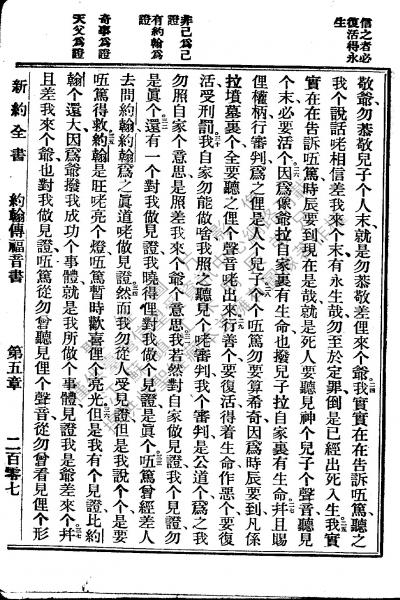 信之者必
復活得永
生
非己爲己
證
有約翰爲
證
奇事爲證
天父爲證
敬爺勿恭敬兒子个人末就是勿恭敬差俚來个爺我實實在在告訴㕶篤聽之
我个說話咾相信差我來个末有永生哉勿至於定罪倒是已經出死入生我實
實在在告訴㕶篤時辰要到現在是哉就是死人要聽見神个兒子个聲音聽見
个末必要活个因爲像爺拉自家裏有生命也撥兒子拉自家裏有生命并且賜
俚權柄行審判爲之俚是人个兒子个㕶篤勿要算希奇因爲時辰要到凡係
拉墳墓裏个全要聽之俚个聲音咾出來行善个要復活得着生命作惡个要復
活受刑罰我自家勿能做啥我照之聽見个咾審判我个審判是公道个爲之我
勿照自家个意思是照差我來个爺个意思我若然對自家做見證我个見證勿
是眞个還有一个對我做見證我曉得俚對我做个見證是眞个㕶篤曾經差人
去問約翰約翰爲之眞道咾做見證然而我勿從人受見證但是我說个个是要
㕶篤得救約翰是旺咾亮个燈㕶篤暫時歡喜俚个亮光但是我有个見證比約
翰个還大因爲爺撥我成功个事體就是我所做个事體見證我是爺差來个并
且差我來个爺也對我做見證㕶篤從勿曾聽見俚个聲音從勿曾看見俚个形
新約全書 約翰傳福音書 第五章 二百零七